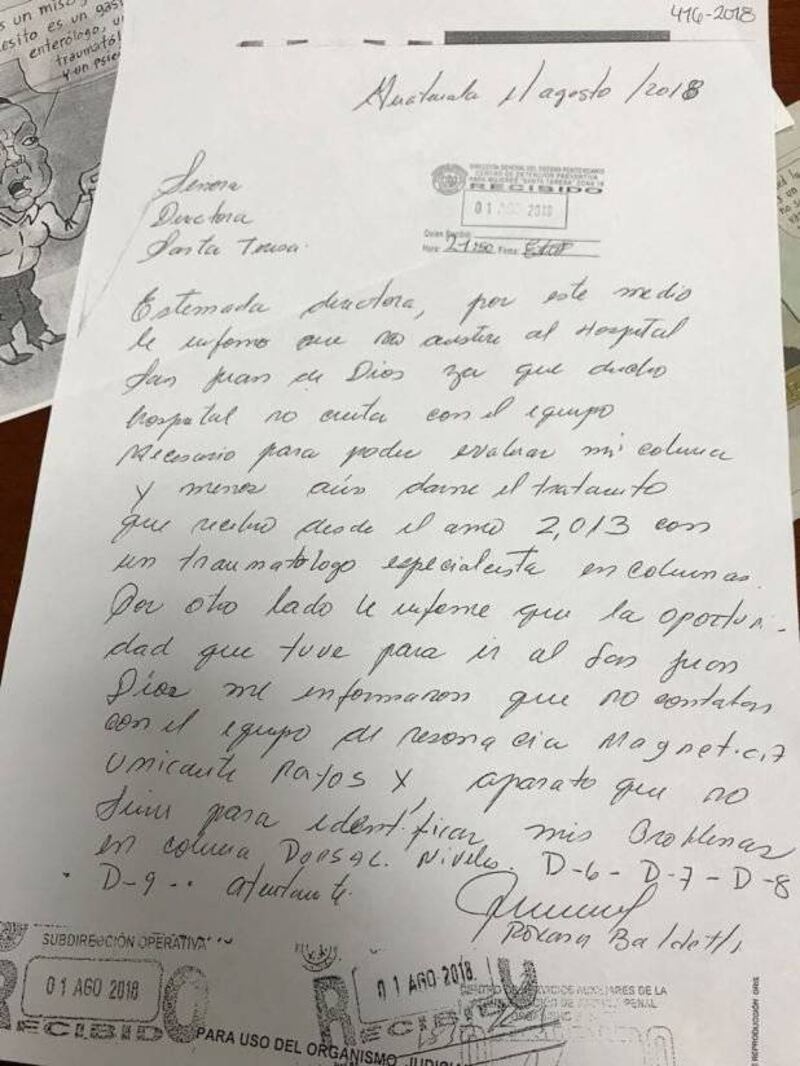 416-2018
s un mis
esito es un gas
enterólogo, u
traumatól
y un psic
Guatemala 1 agosto /2018
DIRECCION GENERAL DEL SISTEMA PENITENCIARIO
CENTRO DE DETENCION PREVENTIVA
PARA MUJERES "SANTA TERESA" ZONA 18
RECIBIDO
01 AGO 2018
Hora: 21:50 Firma:
Señora
Directora
Santa Teresa.
Estimada directora, por este medio
le informo que no asistire al Hospital
San Juan de Dios ya que dicho
hospital no cuenta con el equipo
Necesario para poder evaluar mi columna
y menos aún darme el tratamiento
que recibo desde el año 2,013 con
un traumatólogo especialista en columnas.
Por otro lado le informo que la oportuni-
dad que tuve para ir al San Juan
Dios me informaron que no contaban
con el equipo de resonacia Magnetica,
Unicamente Rayos X, aparato que no
Sirve para identificar mis Problemas
en columna Dorsal. Niveles. D-6 - D-7 - D-8
D-9 .. Atentamente.
Roxana Baldetti
SUBDIRECCIÓN OPERATIVA
01 AGO 2018
RECIBIDO
01 AGO 2018
PARA USO DEL ORGANISMO JUDICI
CENTRO DE SERVICIOS AUXILIARES DE LA
PENAL
E REPRODUCCIÓN GRIS